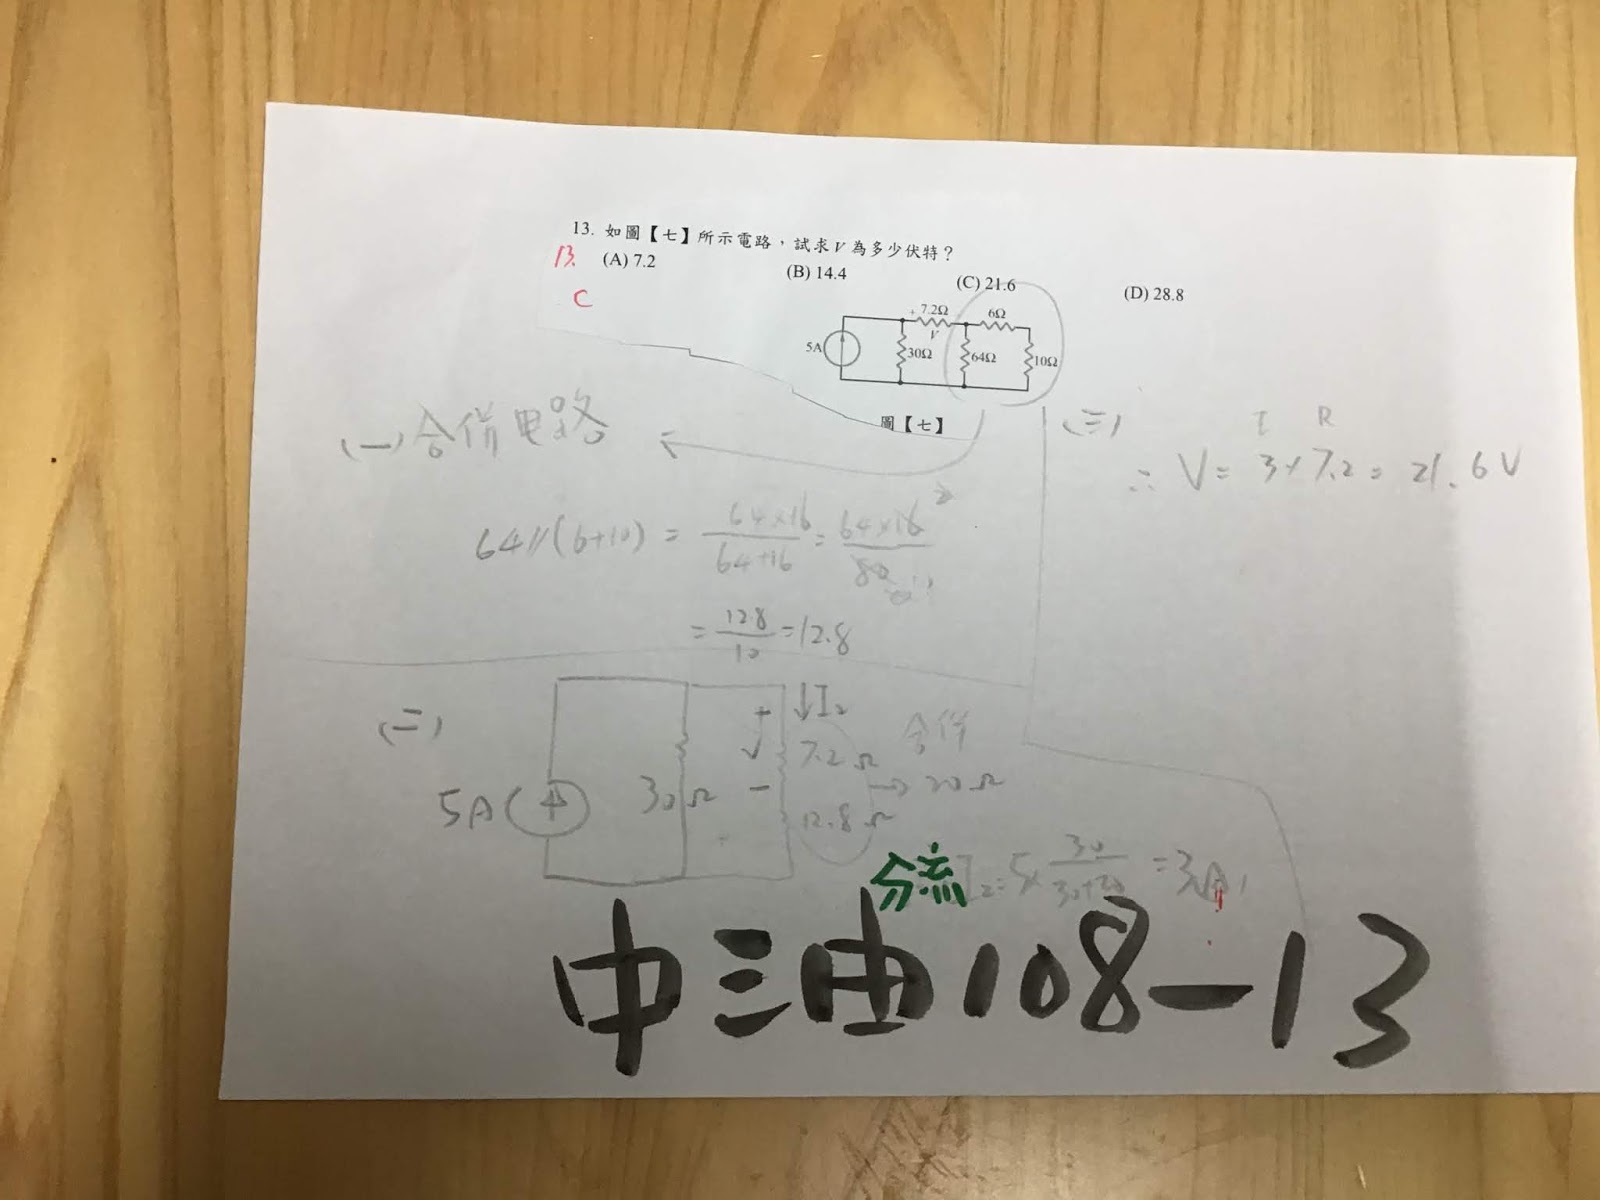 13. 如圖【七】所示電路，試求V為多少伏特？
13.
(A) 7.2 (B) 14.4 (C) 21.6 (D) 28.8
C
+ 7.2Ω 6Ω
V
5A 30Ω 64Ω 10Ω
圖【七】
(一) 合併电路
64//(6+10) = 64×16/64+16 = 64×16/80
= 128/10 = 12.8
(二)
5A 30Ω + V - ↓I2 7.2Ω 12.8Ω 合併 → 20Ω
分流 I2 = 5× 30/30+20 = 3A
(三)
I R
∴ V = 3×7.2 = 21.6V
中三油108-13